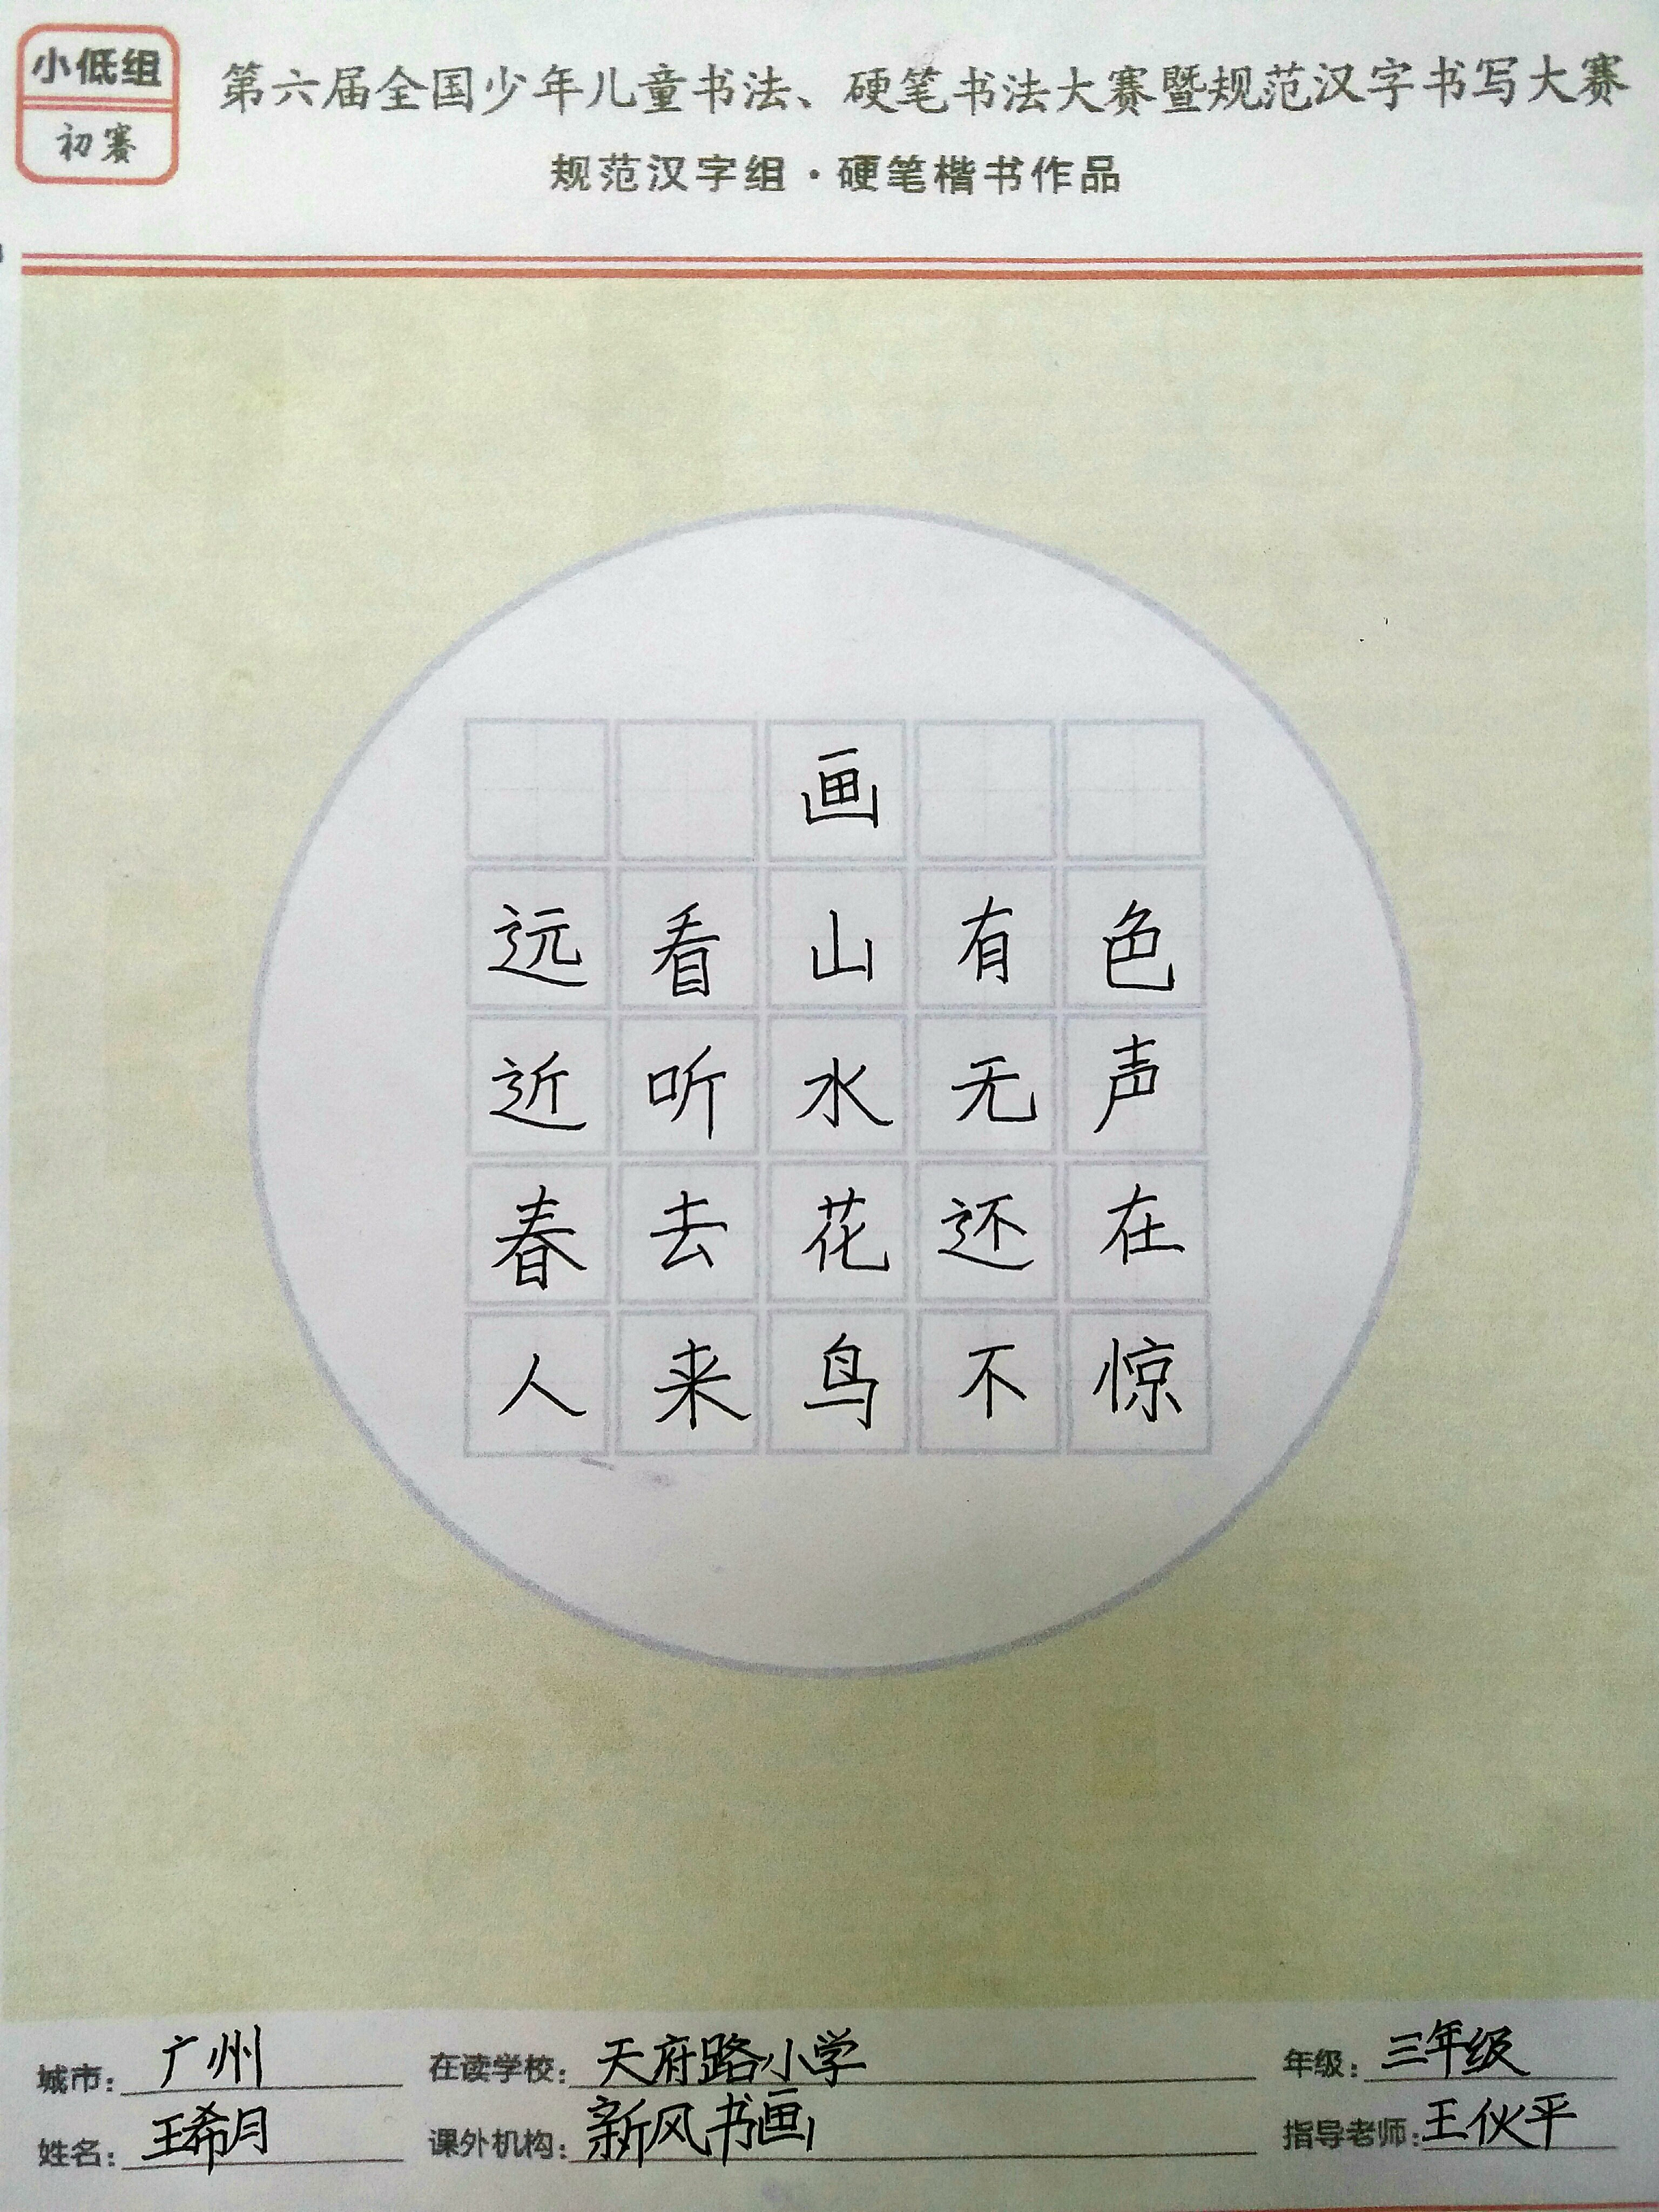 小低组
初赛
第六届全国少年儿童书法、硬笔书法大赛暨规范汉字书写大赛
规范汉字组·硬笔楷书作品
画
远看山有色
近听水无声
春去花还在
人来鸟不惊
城市: 广州 在读学校: 天府路小学 年级: 三年级
姓名: 王希月 课外机构: 新风书画 指导老师: 王伙平